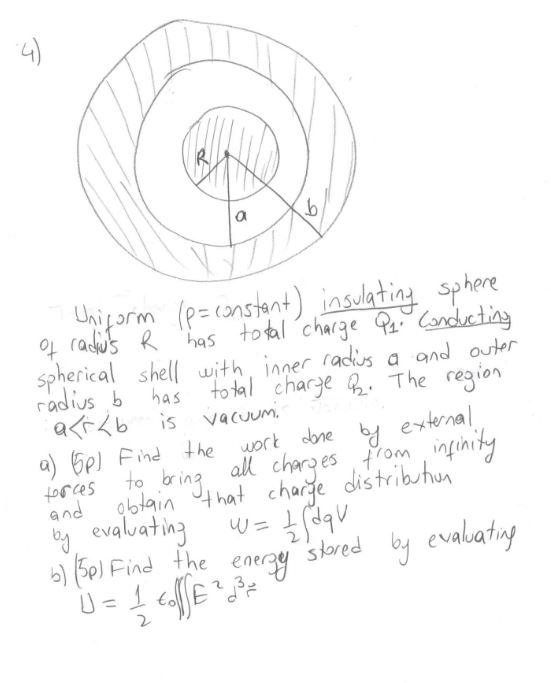 4)
R
a
b
Uniform (ρ=constant) insulating sphere
of radius R has total charge Q1. Conducting
spherical shell with inner radius a and outer
radius b has total charge Q2. The region
a<r<b is vacuum.
a) (5p) Find the work done by external
forces to bring all charges from infinity
and obtain that charge distribution
by evaluating W = 1/2 ∫dqV
b) (5p) Find the energy stored by evaluating
U = 1/2 ε0∭E²d³r⃗